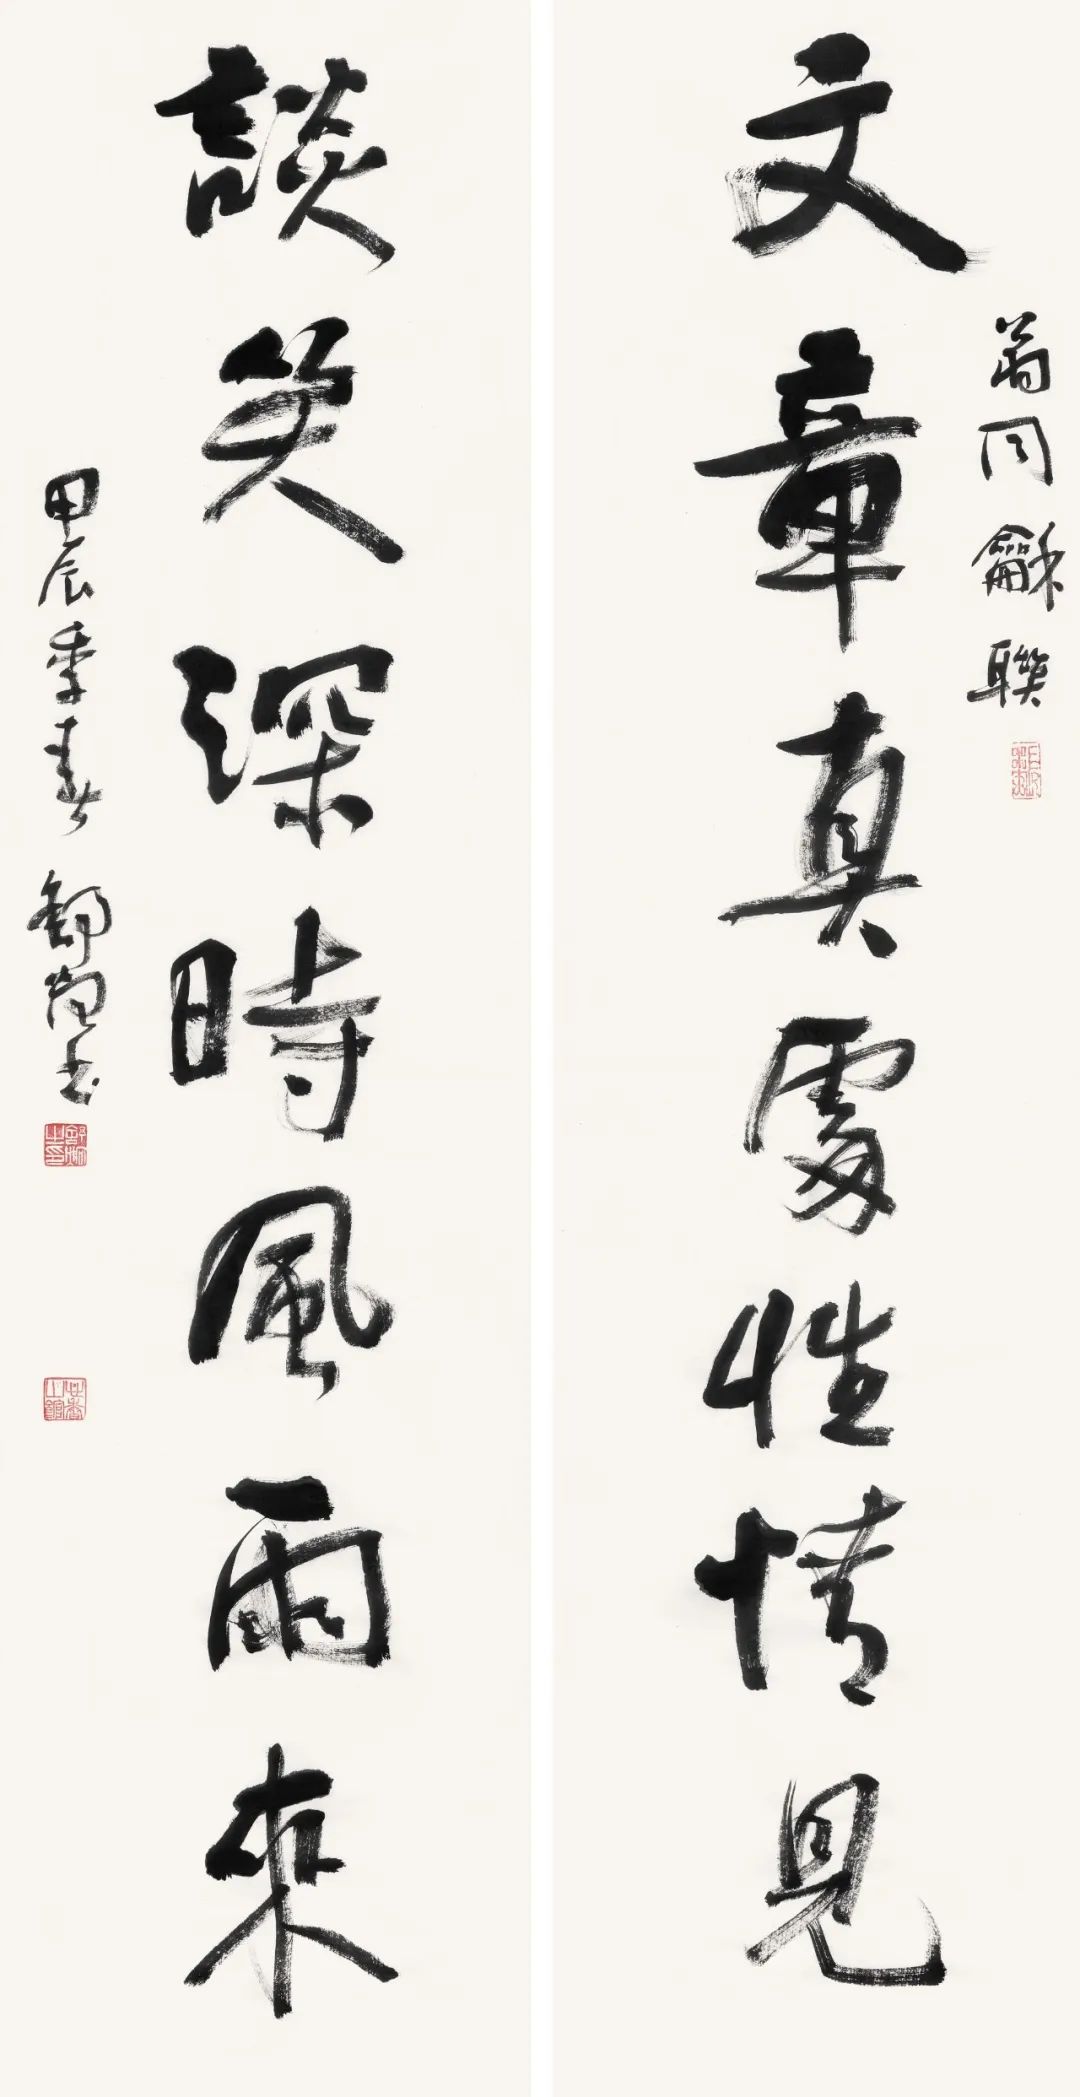 文章真處性情見
翁同龢聯
談笑深時風雨來
甲辰季春 舒炯書